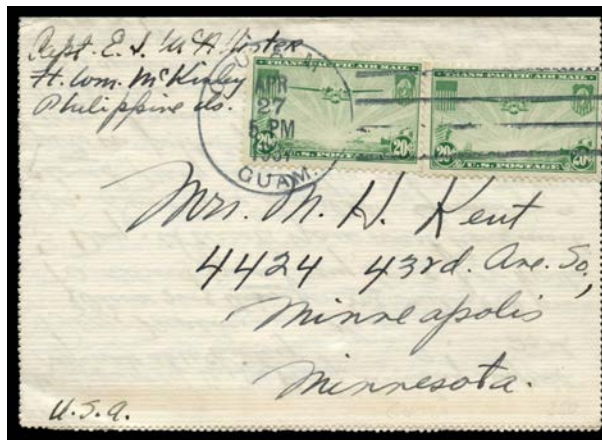 Capt. E. J. McAllister
Ft. Wm. McKinley
Philippine Is.
APR
27
5 PM
1937
GUAM.
TRANS-PACIFIC AIR MAIL
20¢ U.S. POSTAGE 20¢
TRANS-PACIFIC AIR MAIL
20¢ U.S. POSTAGE 20¢
Mrs. M. H. Kent
4424 43rd. Ave. So,
Minneapolis
Minnesota.
U.S.A.